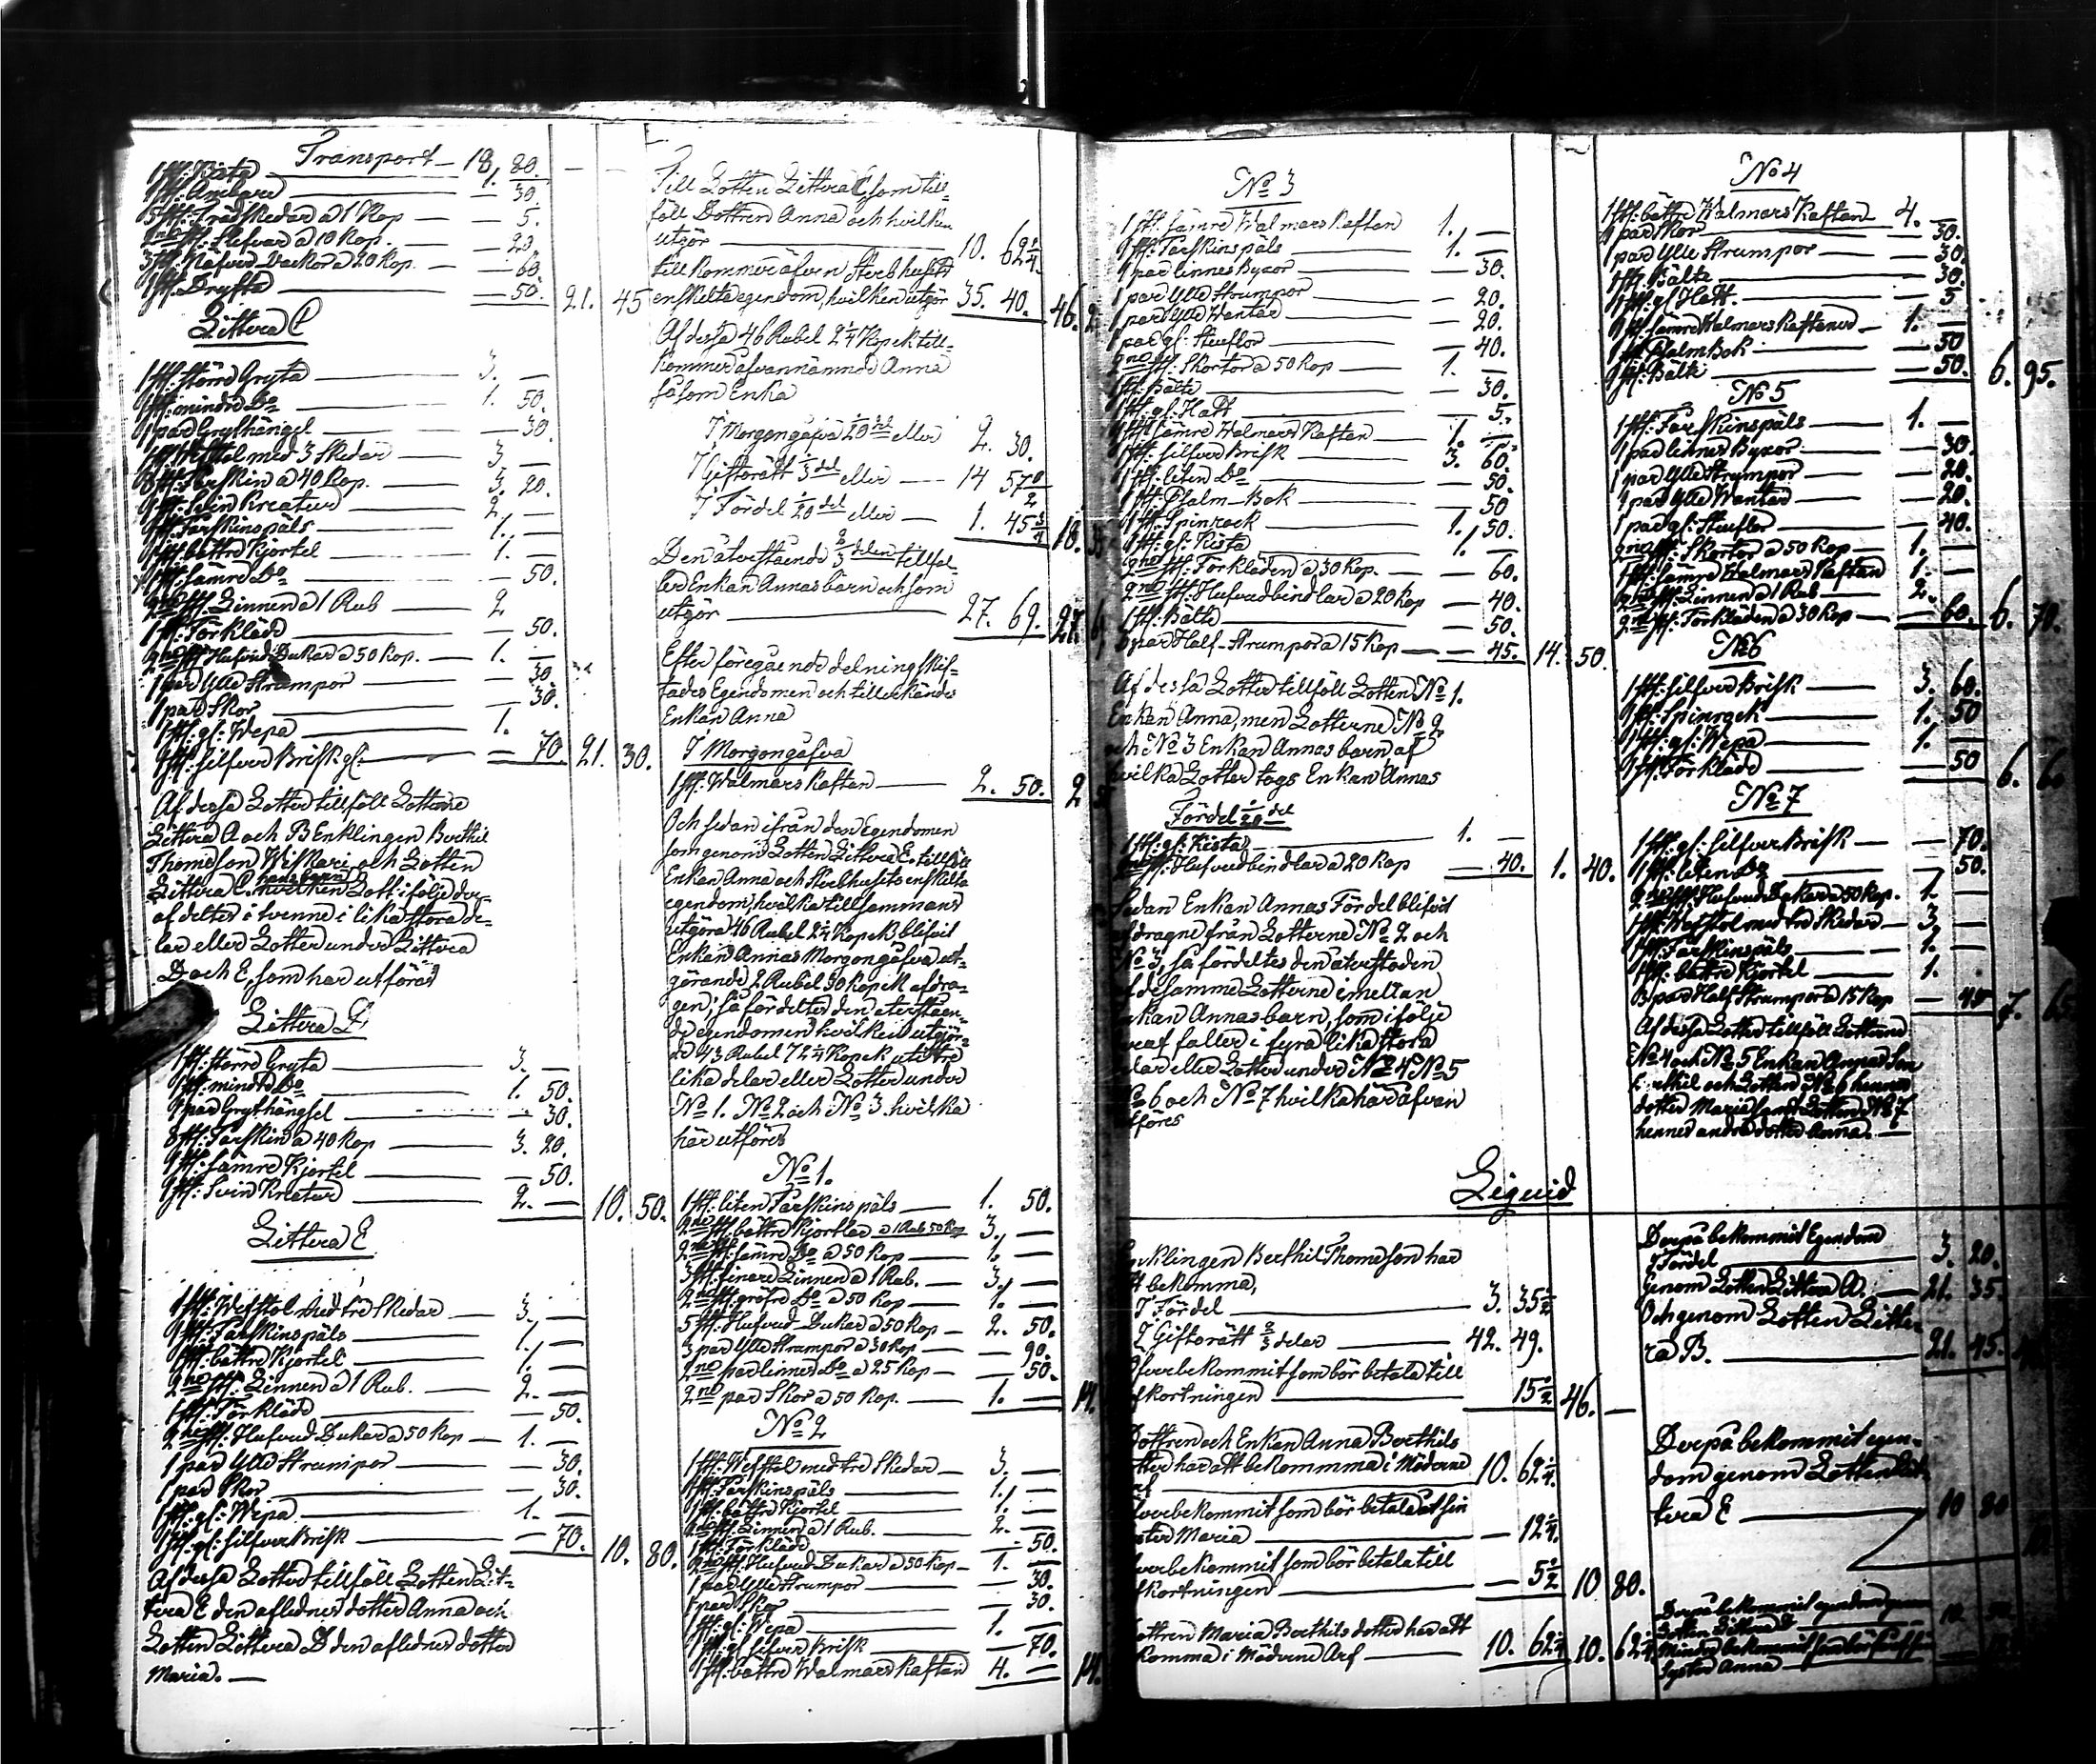 Transport — 18. 80. — —
1 st: Kista — 1. —
1 st: Ambare — 30.
5 st: Trädskedar a 1 Kop — 5.
2ne st: Skefvar a 10 Kop. — 20.
3 st: Näfver Veckor a 20 Kop. — 60.
1 st: Dryfta — 50. 21. 45
Littera C
1 st: större Gryta — 3. —
1 st: mindre Do — 1. 50.
1 par Grythängel — 30.
1 st: Wefstol med 3 Skedar — 3 —
8 st: Fårskin a 40 Kop. — 3. 20.
1 st: Svin Kreatur — 2. —
1 st: Fårskinspäls — 1. —
1 st: bättre Kjortel — 1. —
1 st: sämre Do — 50.
2ne st: Linnen a 1 Rub — 2
1 st: Förkläde — 50.
2ne st: Hufvud Dukar a 50 Kop. — 1. —
1 par Ylle Strumpor — 30.
1 par Skor — 30.
1 st: gl: Wepa — 1.
1 st: silfver Brisk gl: — 70. 21. 30.
Af dessa Lotter tillföll Lotterne
Littera A och B Enklingen Berthil
Thomeson Wiskari och Lotten
Littera C. hans barn hvilken Lott i följe der-
af deltes i tvenne i lika stora de-
lar eller Lotter under Littera
D och E, som här utföras
Littera D
1 st: större Gryta — 3. —
1 st: mindre Do — 1. 50.
1 par Grythängsel — 30.
8 st: Fårskin a 40 Kop — 3. 20.
1 st: sämre Kjortel — 50.
1 st: Svin Kreatur — 2. — 10. 50.
Littera E
1 st: Wefstol med tre Skedar — 3. —
1 st: Fårskinspäls — 1. —
1 st: bättre Kjortel — 1. —
2ne st: Linnen a 1 Rub. — 2. —
1 st: Förkläde — 50.
2ne st: Hufvud Dukar a 50 Kop — 1. —
1 par Ylle Strumpor — 30.
1 par Skor — 30.
1 st: gl: Wepa — 1. —
1 st: gl: silfver Brisk — 70. 10. 80.
Af dessa Lotter tillföll Lotten Lit-
tera E den aflednes dotter Anna och
Lotten Littera D den aflednes dotter
Maria. —
Till Lotten Littera E som till-
föll Dottren Anna och hvilken
utgör — 10. 62 1/4.
tillkommer äfven Sterbhusets
enskilta egendom, hvilken utgör 35. 40. 46. 2
Af dessa 46 Rubel 2 1/4 Kopek till-
kommer ofvannämnde Anna
såsom Enka
I Morgongåfva 1/20 del eller 2. 30.
I Giftorätt 1/3 del eller — 14 57
I Fördel 1/20 del eller — 1. 45 18.
Den återstående 2/3 delen tillfal-
ler Enkan Annas barn och som
utgör — 27. 69. 27.
Efter föregående delning skif-
tades Egendomen och tillerkändes
Enkan Anna
I Morgongåfva
1 st: Walmars Kaftan — 2. 50. 2
Och sedan ifrån den Egendomen
som genom Lotten Littera E tillföll
Enkan Anna och Sterbhusets enskilta
egendom, hvilka tillsammans
utgöra 46 Rubel 2 1/4 Kopek, blifvit
Enkan Annas Morgongåfva ut-
görande 2 Rubel 30 Kopek afdra-
gen; så fördeltes den återståen-
de egendomen hvilken utgör-
de 43 Rubel 72 1/4 Kopek uti tre
lika delar eller Lotter under
No 1. No 2 och No 3 hvilka
här utföres
No 1.
1 st: liten Fårskinspäls — 1. 50.
2ne st: bättre Kjortlar a 1 Rub 50 Kop 3. —
2ne st: sämre Do a 50 Kop — 1. —
3 st: finare Linnen a 1 Rub. — 3. —
2ne st: gröfre Do a 50 Kop — 1. —
5 st: Hufvud Dukar a 50 Kop — 2. 50.
3 par Ylle Strumpor a 30 Kop — 90.
2ne par linnes Do a 25 Kop — 50.
2ne par Skor a 50 Kop. — 1. — 14.
No 2
1 st: Wefstol med tre Skedar — 3. —
1 st: Fårskinspäls — 1. —
1 st: bättre Kjortel — 1. —
2ne st: Linnen a 1 Rub. — 2. —
1 st: Förkläde — 50.
2ne st: Hufvud Dukar a 50 Kop — 1. —
1 par Ylle Strumpor — 30.
1 par Skor — 30.
1 st: gl: Wepa — 1. —
1 st: gl: silfver Brisk — 70.
1 st: bättre Walmars Kaftan 4. — 14.
No 3
1 st: sämre Walmars Kaftan 1. —
1 st: Fårskinspäls — 1. —
1 par linnes Byxor — 30.
1 par Ylle Strumpor — 20.
1 par Ylle Wantar — 20.
1 par gl: Stuflor — 40.
2ne st: Skortor a 50 Kop — 1. —
1 st: Bälte — 30.
1 st: gl: Hatt — 5.
1 st: sämre Walmars Kaftan — 1. —
1 st: silfver Brisk — 3. 60.
1 st: liten Do — 50.
1 st: Psalm-Bok — 50
1 st: Spinrock — 1. 50.
1 st: gl: Kista — 1. —
2ne st: Förkläden a 30 Kop. — 60.
2ne st: Hufvudbindlar a 20 Kop — 40.
1 st: Bälte — 50.
3 par Half-Strumpor a 15 Kop — 45. 14. 50.
Af dessa Lotter tillföll Lotten No 1.
Enkan Anna, men Lotterne No 2
och No 3 Enkan Annas barn af
hvilka Lotter togs Enkan Annas
Fördel 1/20 del
1 st: gl: Kista — 1. —
2ne st: Hufvudbindlar a 20 Kop — 40. 1. 40.
Sedan Enkan Annas Fördel blifvit
dragne från Lotterne No 2 och
No 3, så fördeltes den återstoden
desamme Lotterne imellan
kan Annas barn, som i följe
raf faller i fyra lika stora
lar eller Lotter under No 4 No 5
No 6 och No 7 hvilka här ofvan
föres
No 4
1 st: bättre Walmars Kaftan 4. —
1 par Skor — 30.
1 par Ylle Strumpor — 30.
1 st: Bälte — 30.
1 st: gl: Hatt — 5
1 st: sämre Walmars Kaftan — 1. —
1 st: Psalmbok — 50
1 st: Bälte — 50. 6. 95.
No 5
1 st: Fårskinspäls — 1. —
1 par linnes Byxor — 30.
1 par Ylle Strumpor — 20.
1 par Ylle Wantar — 20.
1 par gl: Stuflor — 40.
2ne st: Skortor a 50 Kop — 1. —
1 st: sämre Walmars Kaftan 1. —
2ne st: Linnen a 1 Rub — 2.
2ne st: Förkläden a 30 Kop — 60. 6. 70.
No 6
1 st: silfver Brisk — 3. 60.
1 st: Spinrock — 1. 50
1 st: gl: Wepa — 1. —
1 st: Förkläde — 50 6. 60
No 7
1 st: gl: silfver Brisk — 70.
1 st: liten Do — 50.
2ne st: Hufvud Dukar a 50 Kop. 1. —
1 st: Wefstol med tre Skedar — 3. —
1 st: Fårskinspäls — 1. —
1 st: bättre Kjortel — 1.
3 par Half Strumpor a 15 Kop — 45 7. 65
Af dessa Lotter tillföll Lotterne
No 4 och No 5 Enkan Annas Son
Berthil och Lotten No 6 hennes
dotter Maria samt Lotten No 7
hennes andre dotter Anna. —
Liquid
Enklingen Berthil Thomeson har
att bekomma,
I Fördel — 3. 35 1/2
I Giftorätt 2/3 delar — 42. 49.
Öfverbekommit som bör betala till
afkortningen — 15 1/2 46. —
Dottren och Enkan Anna Berthils
dotter har att bekomma i Möderne
Arf 10. 62 1/4.
Öfverbekommit som bör betala åt sin
syster Maria — 12 1/4.
Öfverbekommit som bör betala till
afkortningen — 5 1/2 10 80.
Dottren Maria Berthils dotter har att
bekomma i Möderne Arf — 10. 62 1/4 10. 62 1/4
Derpå bekommit Egendom
I Fördel — 3. 20.
Genom Lotten Littera A. — 21. 35.
Och genom Lotten Litte-
ra B. — 21. 45.
Derpå bekommit egen-
dom genom Lotten Lit-
tera E — 10 80
Derpå bekommit egendom genom
Lotten Littera D 10. 50.
Mindre bekommit som bör
Syster Anna —